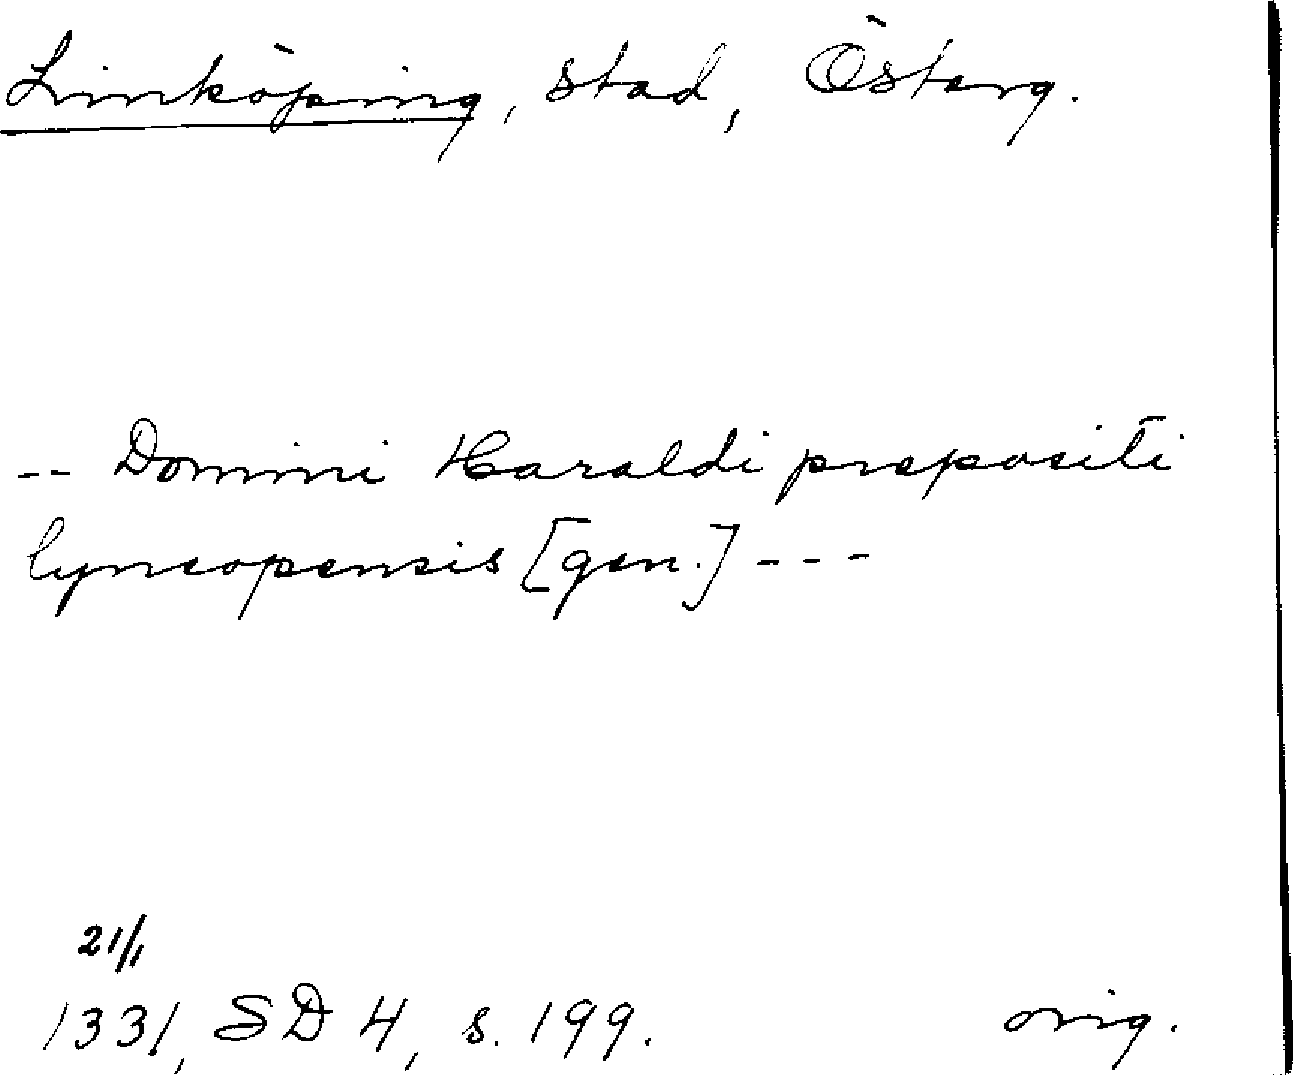 Linköping, stad, Österg.
-- Domini Haraldi prepositi
lyncopensis [gen.] ---
21/1
1331, SD 4, s. 199. orig.